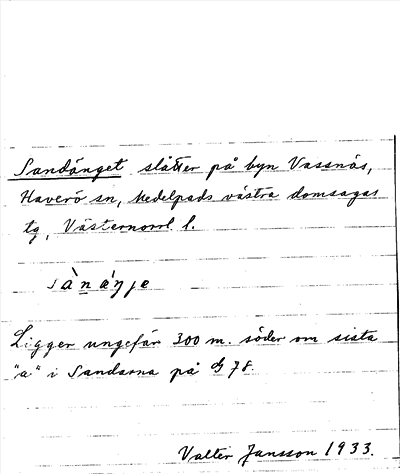 Sandänget slåtter på byn Vassnäs,
Haverö sn, Medelpads västra domsagas
tg, Västernorrl l.
sànáŋje
Ligger ungefär 300 m. söder om sista
"a" i Sandarna på 78.
Valter Jansson 1933.